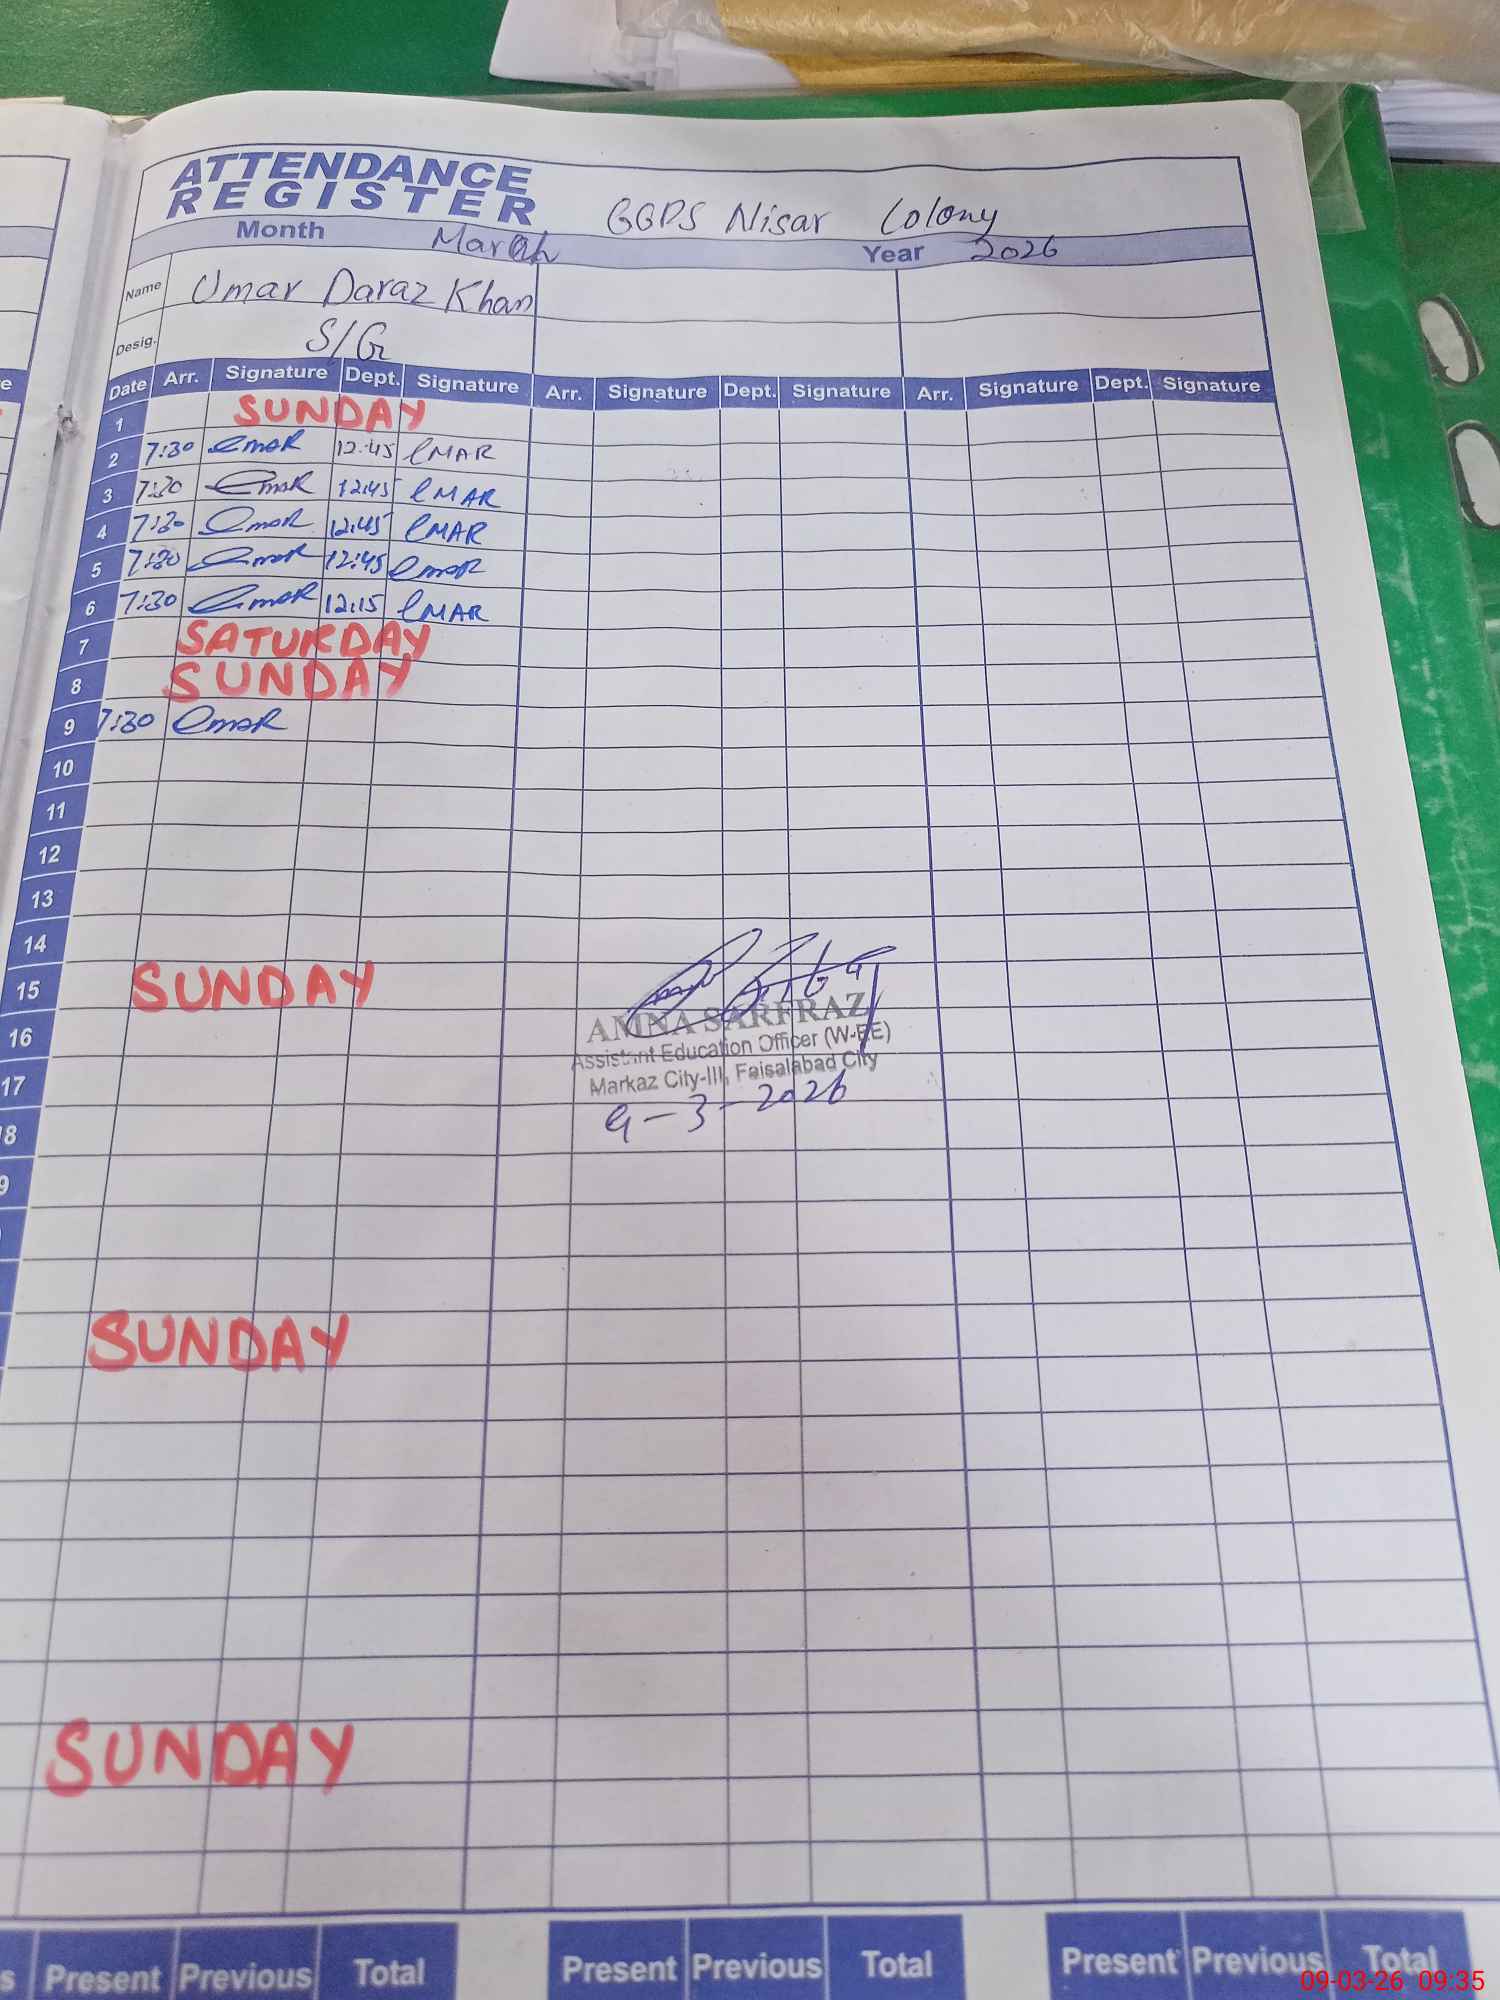 ATTENDANCE
REGISTER
GGPS Nisar Colony
Month March Year 2026
Name Umar Daraz Khan
Desig. S/G
Date Arr. Signature Dept. Signature Arr. Signature Dept. Signature Arr. Signature Dept. Signature
1 SUNDAY
2 7:30 UMAR 12:45 UMAR
3 7:30 UMAR 12:45 UMAR
4 7:30 UMAR 12:45 UMAR
5 7:30 UMAR 12:45 UMAR
6 7:30 UMAR 12:15 UMAR
7 SATURDAY
8 SUNDAY
9 7:30 UMAR
10
11
12
13
14
15 SUNDAY
16
17
18
9
AMNA SARFRAZ
Assistant Education Officer (W-EE)
Markaz City-III, Faisalabad City
9-3-2026
SUNDAY
SUNDAY
Present Previous Total Present Previous Total Present Previous Total
09-03-26 09:35